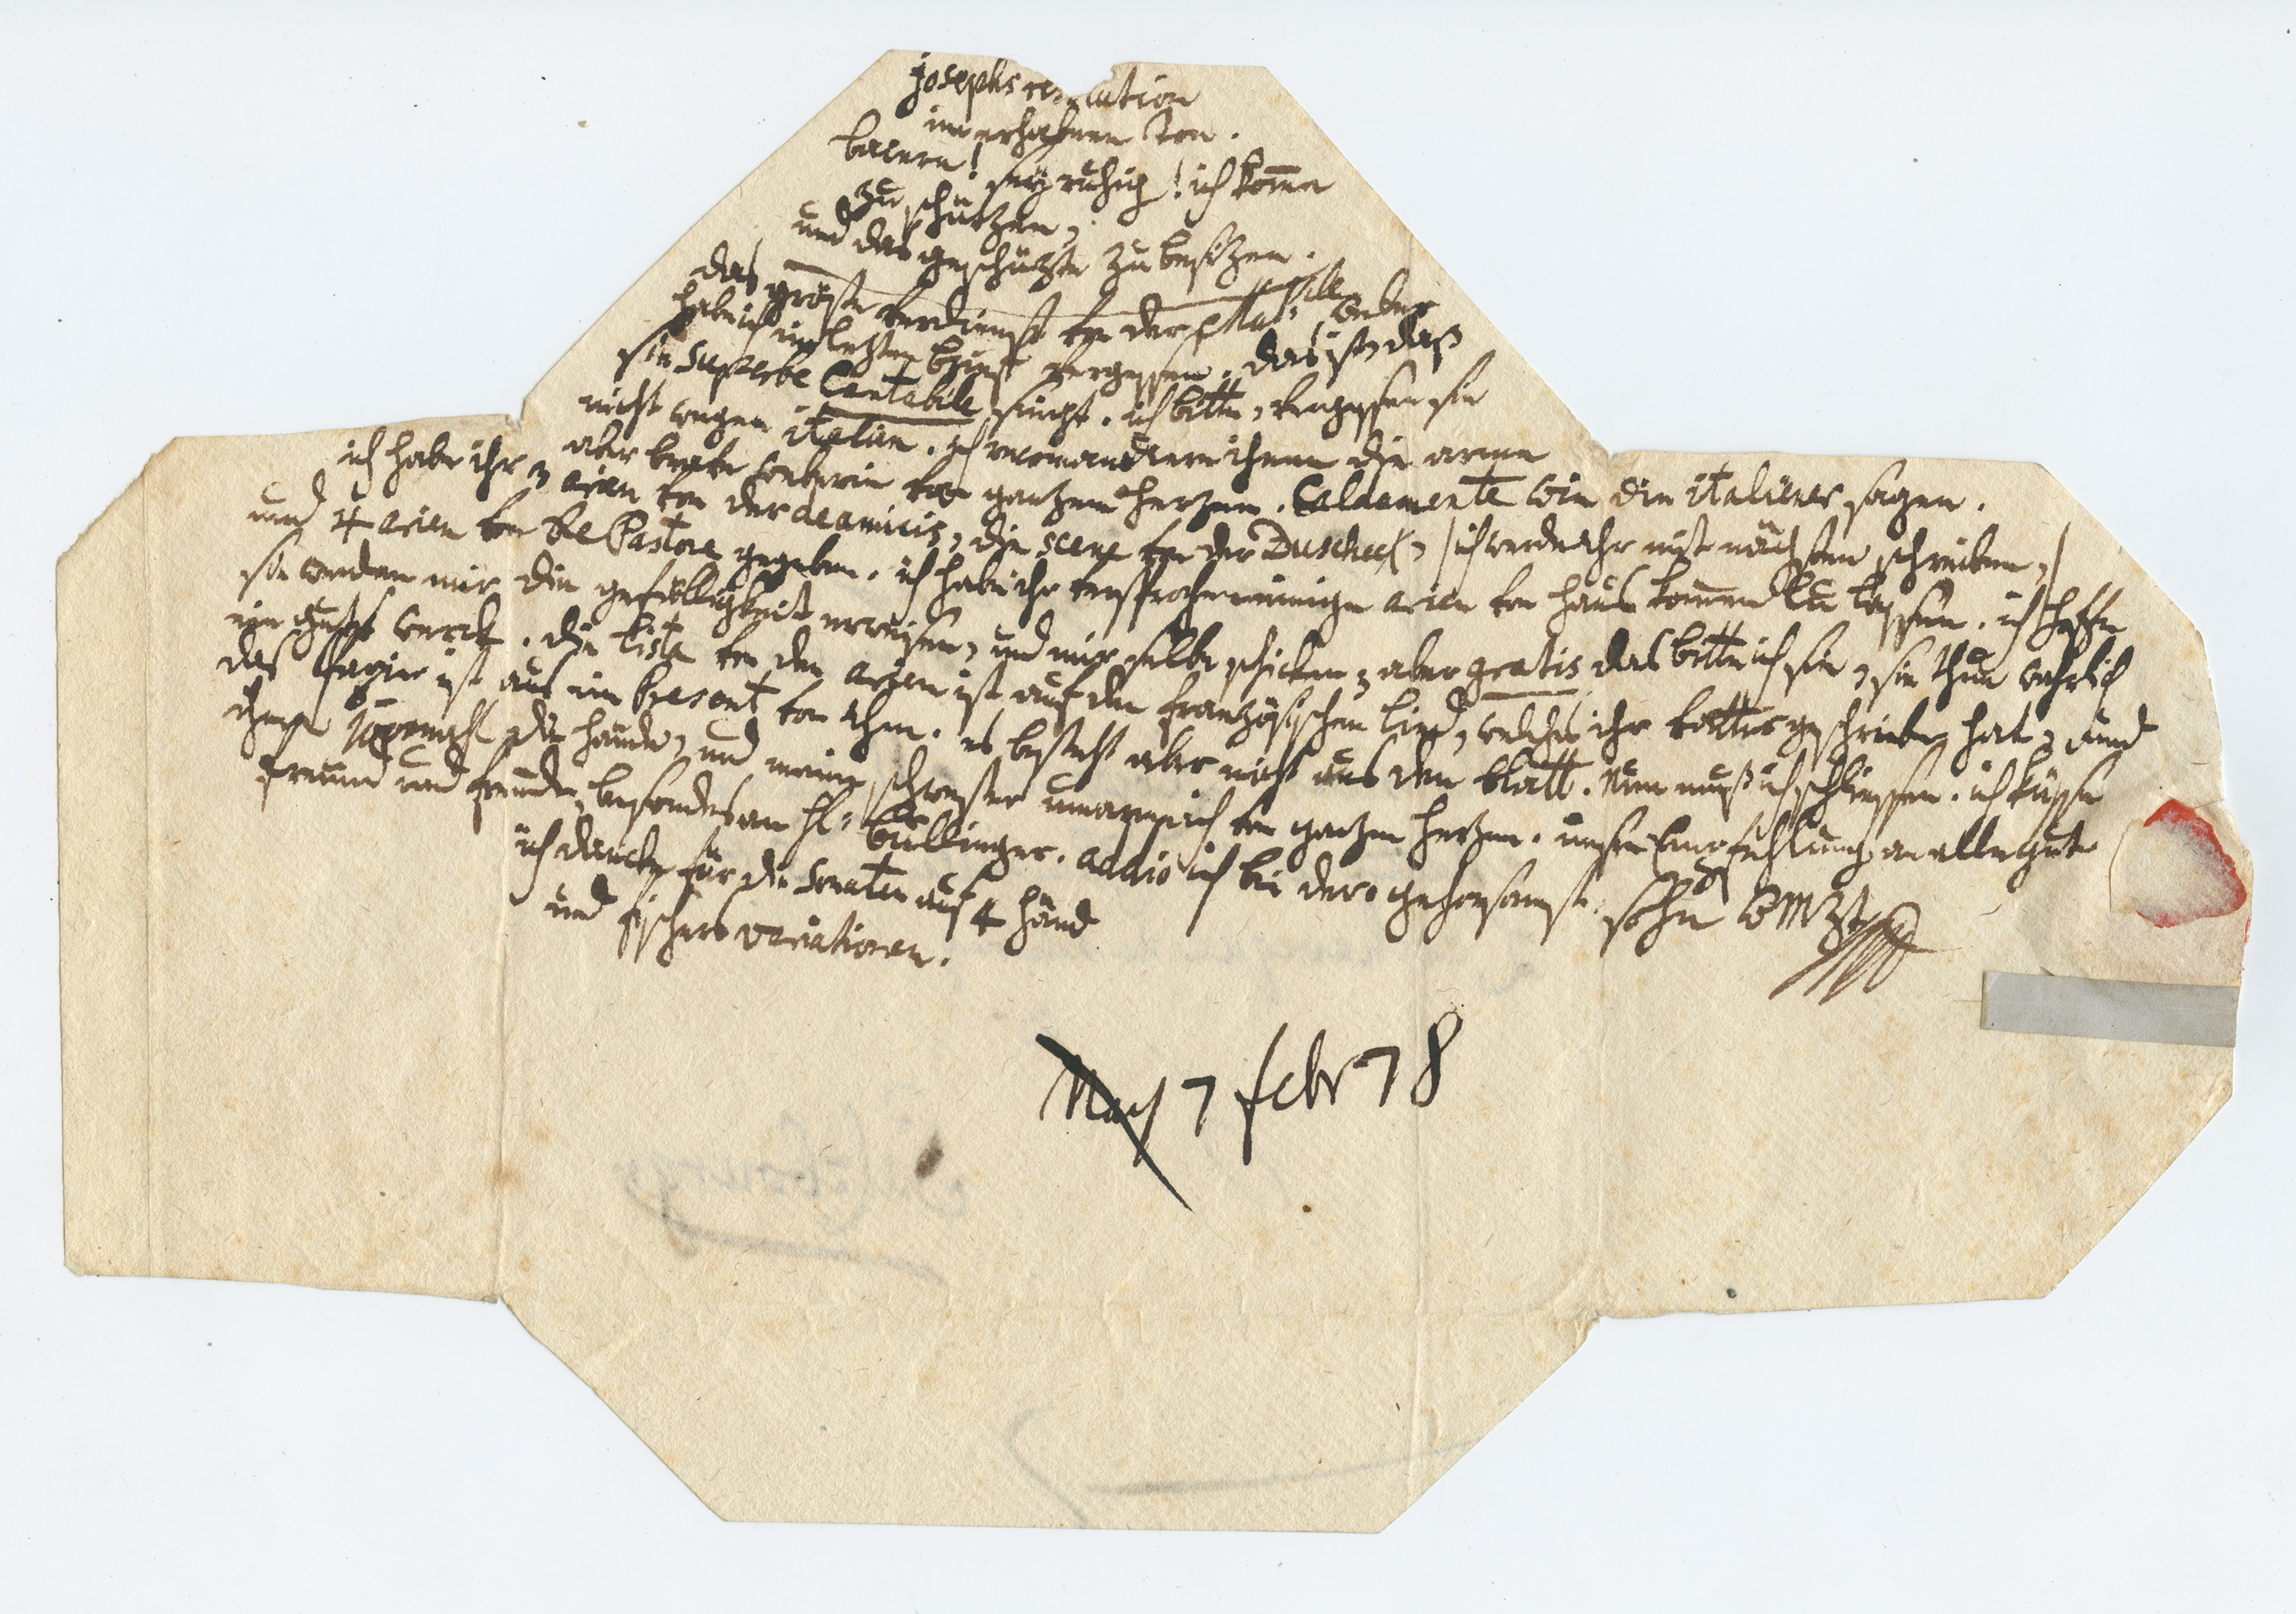 josephs re ation
im erhabnen Ton.
bayern! seÿ ruhig! ich komme
zu schützen,
und das geschützte zu besitzen.
das gröste verdienst von der Mad:selle weber
habe ich im letzten brief vergessen. das ist, daß
sie superbe Cantabile singt. ich bitte, vergessen sie
nicht wegen italien. ich recomandiere ihnen die arme
aber brave weberin von ganzem herzen. Caldamente wie die italiener sagen.
ich habe ihr 3 arien von der deamicis, die scene von der Duscheck, /: ich werde ihr mit nächsten schreiben, :/
und 4 arien von Re Pastore gegeben. ich habe ihr versprochen einige arien von haus kommen zu lassen. ich hoffe
sie werden mir die gefälligkeit erweisen, und mir selbe schicken, aber gratis das bitte ich sie, sie thun wahrlich
ein gutes werck. die lista von den arien ist auf den französischen lied, welches ihr vatter geschrieben hat, und
das papier ist aus ein Present von ihm. es besteht aber nicht aus den blatt. Nun muß ich schliessen. ich küsse
ihnen 100000mahl die hände, und meine schwester umarme ich von ganzen herzen. unsere Empfehlung an alle gute
freund und freundin, besonders an H: bullinger. addio ich bin dero gehorsamste sohn W M Zt
ich dancke für die Sonaten auf 4 händ
und fischers variationen.
7 febr 78